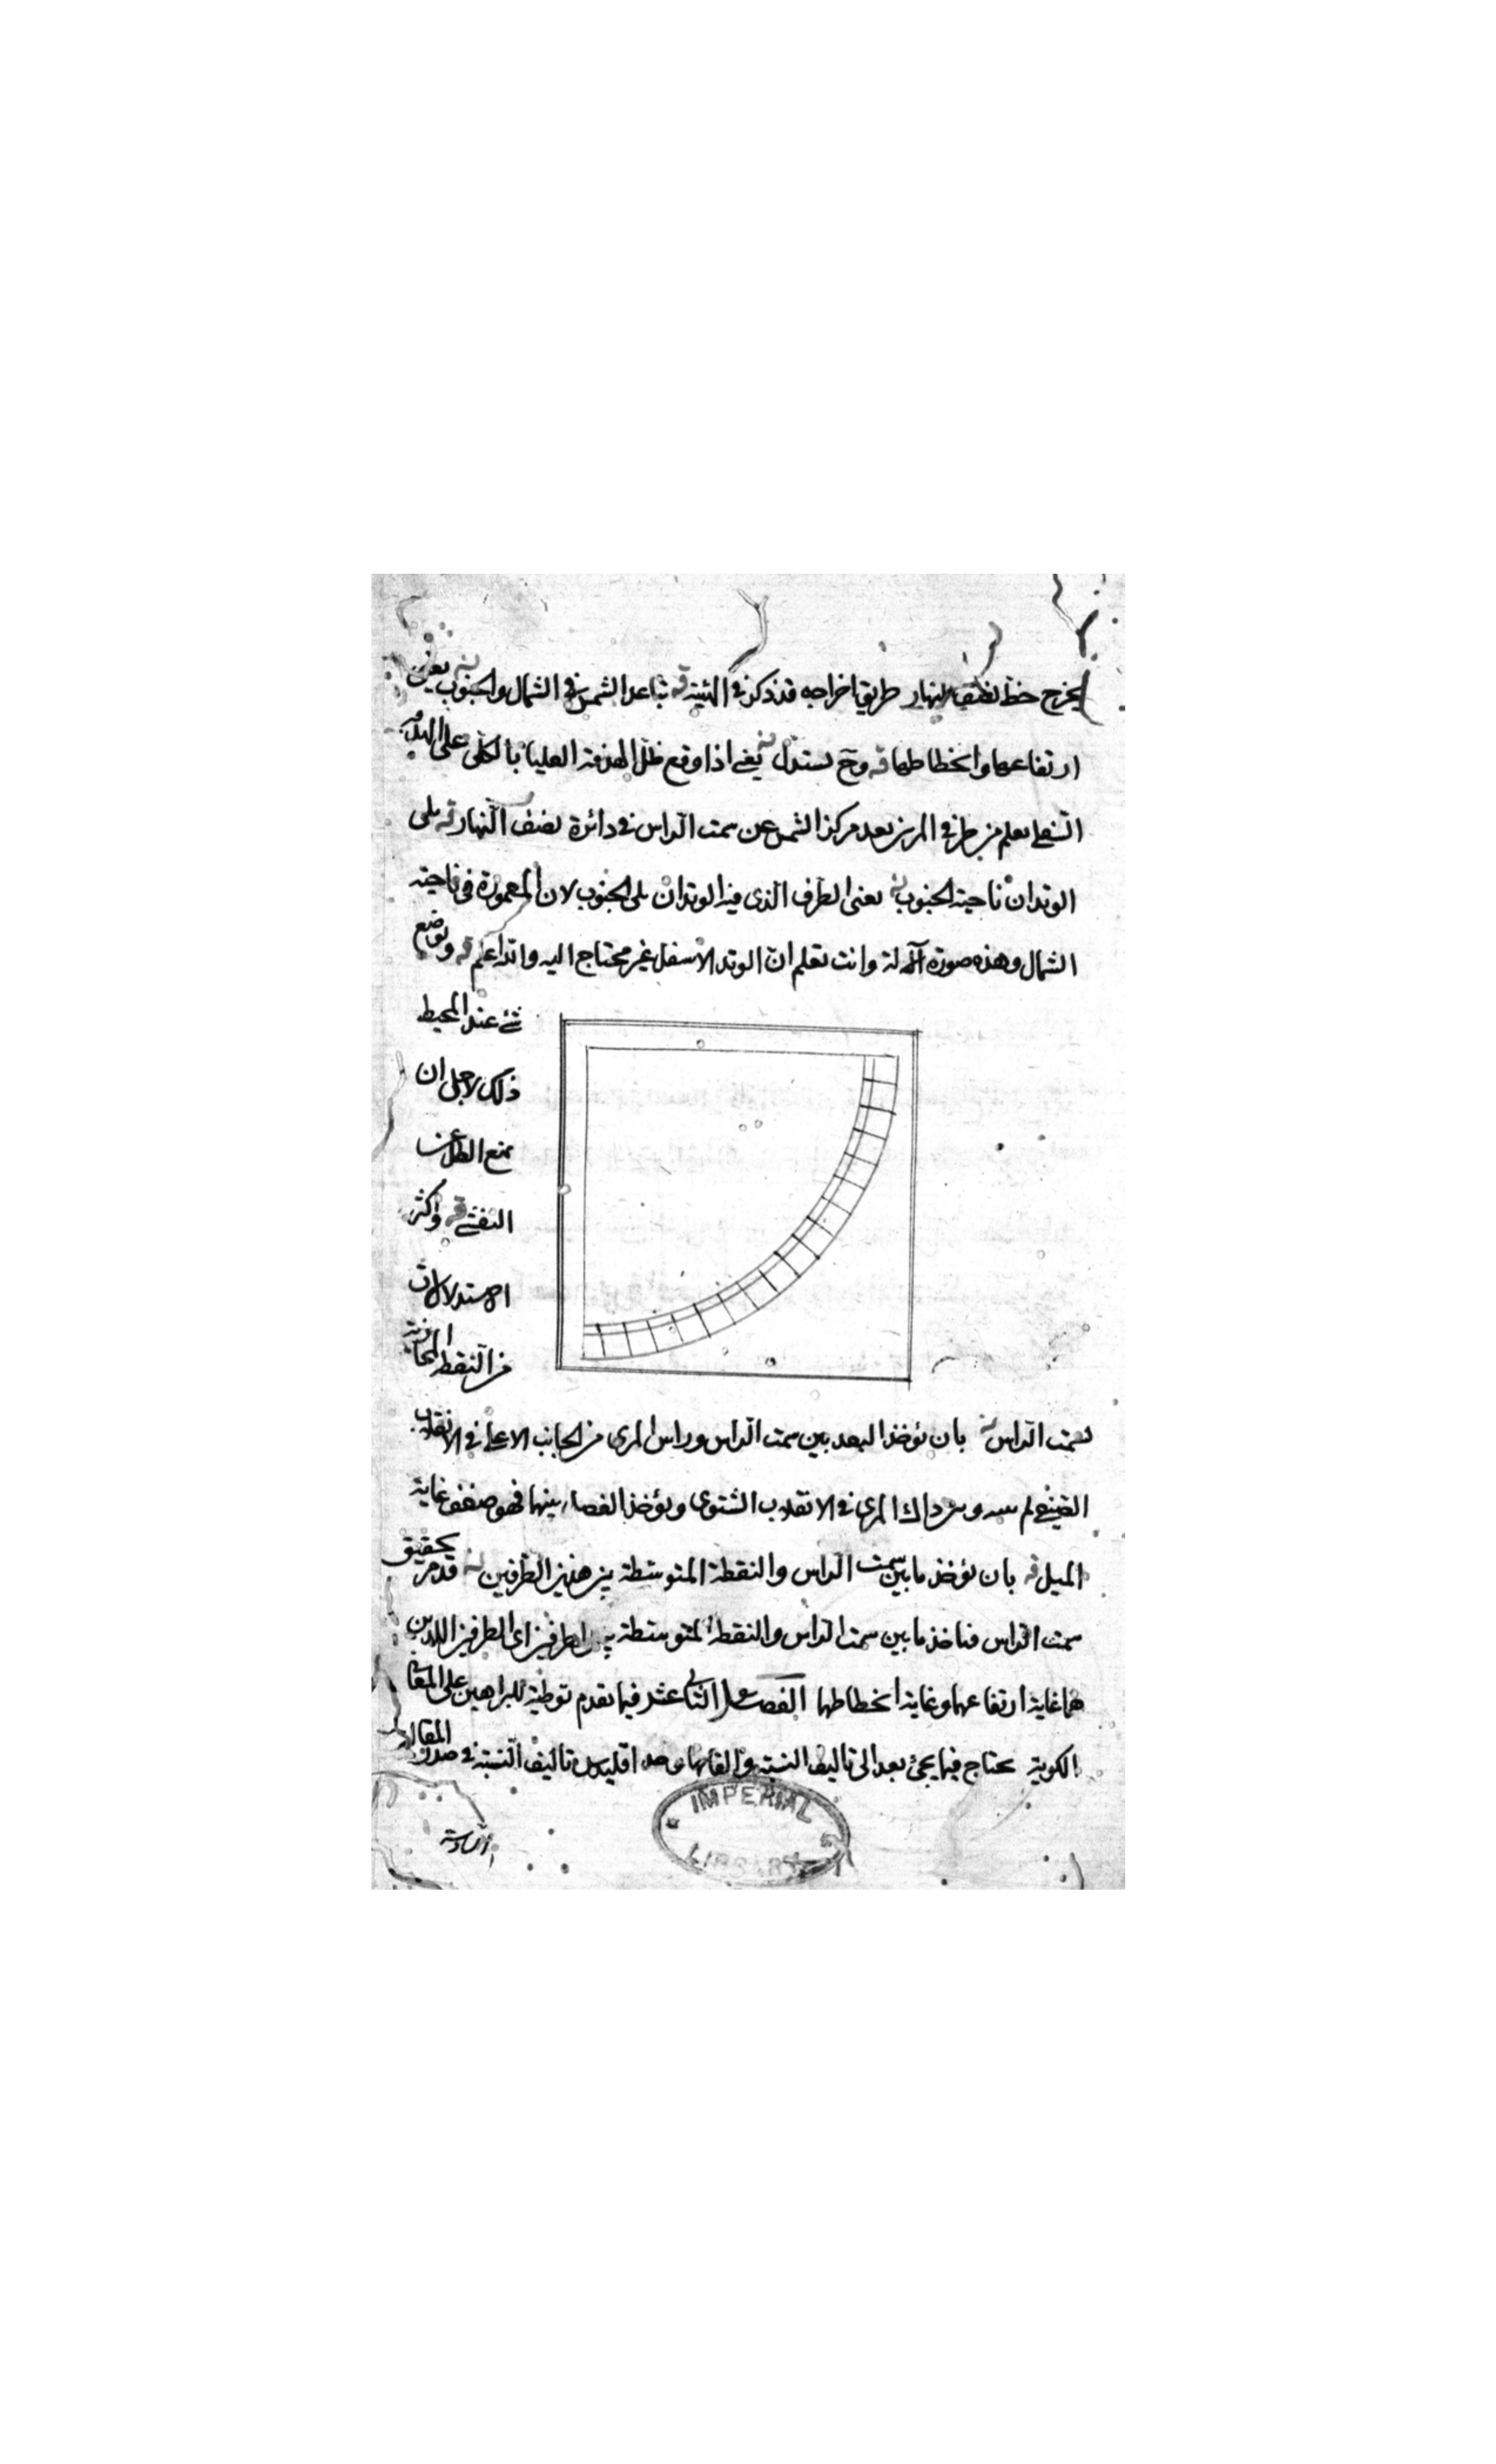 يخرج خط نصف النهار طريق اخراجه قد ذكر في الهيئة قه تباعد الشمس في الشمال والجنوب يعنى
ارتفاعها وانخطاطها قه وح يستدل يعنى اذا وقع ظل الهدفة العليا بالكلى على الهدفة
السفلى يعلم من طرفي المرى بعد مركز الشمس عن سمت الراس في دائرة نصف النهار قه يلى
الوتدان ناحية الجنوب يعنى الطرف الذى فيه الوتدان يلى الجنوب لان المعمورة في ناحية
الشمال وهذه صورة الآلة وانت تعلم ان الوتد الاسفل غير محتاج اليه والله اعلم قه ويوضع
شئ عند المحيط
ذلك لاجل ان
يمنع الظل عن
التفشى قه واكثر
الاستدلالات
من النقط المحاذية
لسمت الراس بان يؤخذ البعد بين سمت الراس وراس المرى من الجانب الاعلى في الانقلاب
الصيفى ثم بينه وبين ذاك المرى في الانقلاب الشتوى ويؤخذ الفصل بينهما فهو ضعف غاية
الميل قه بان يؤخذ ما بين سمت الراس والنقطة المتوسطة بين هذين الطرفين قد مر تحقيق
سمت الراس فناخذ ما بين سمت الراس والنقطة المتوسطة بين الطرفين اى الطرفين اللذين
هما غاية ارتفاعها وغاية انخطاطها الفصل الثانى عشر فيما يقدم توطية للبراهين على المقا
الكوية يحتاج فيما يجئ بعد الى تاليف النسبة والقائها وحد اقليدس تاليف النسبة في صدر المقالة
السادسة
IMPERIAL
LIBRARY